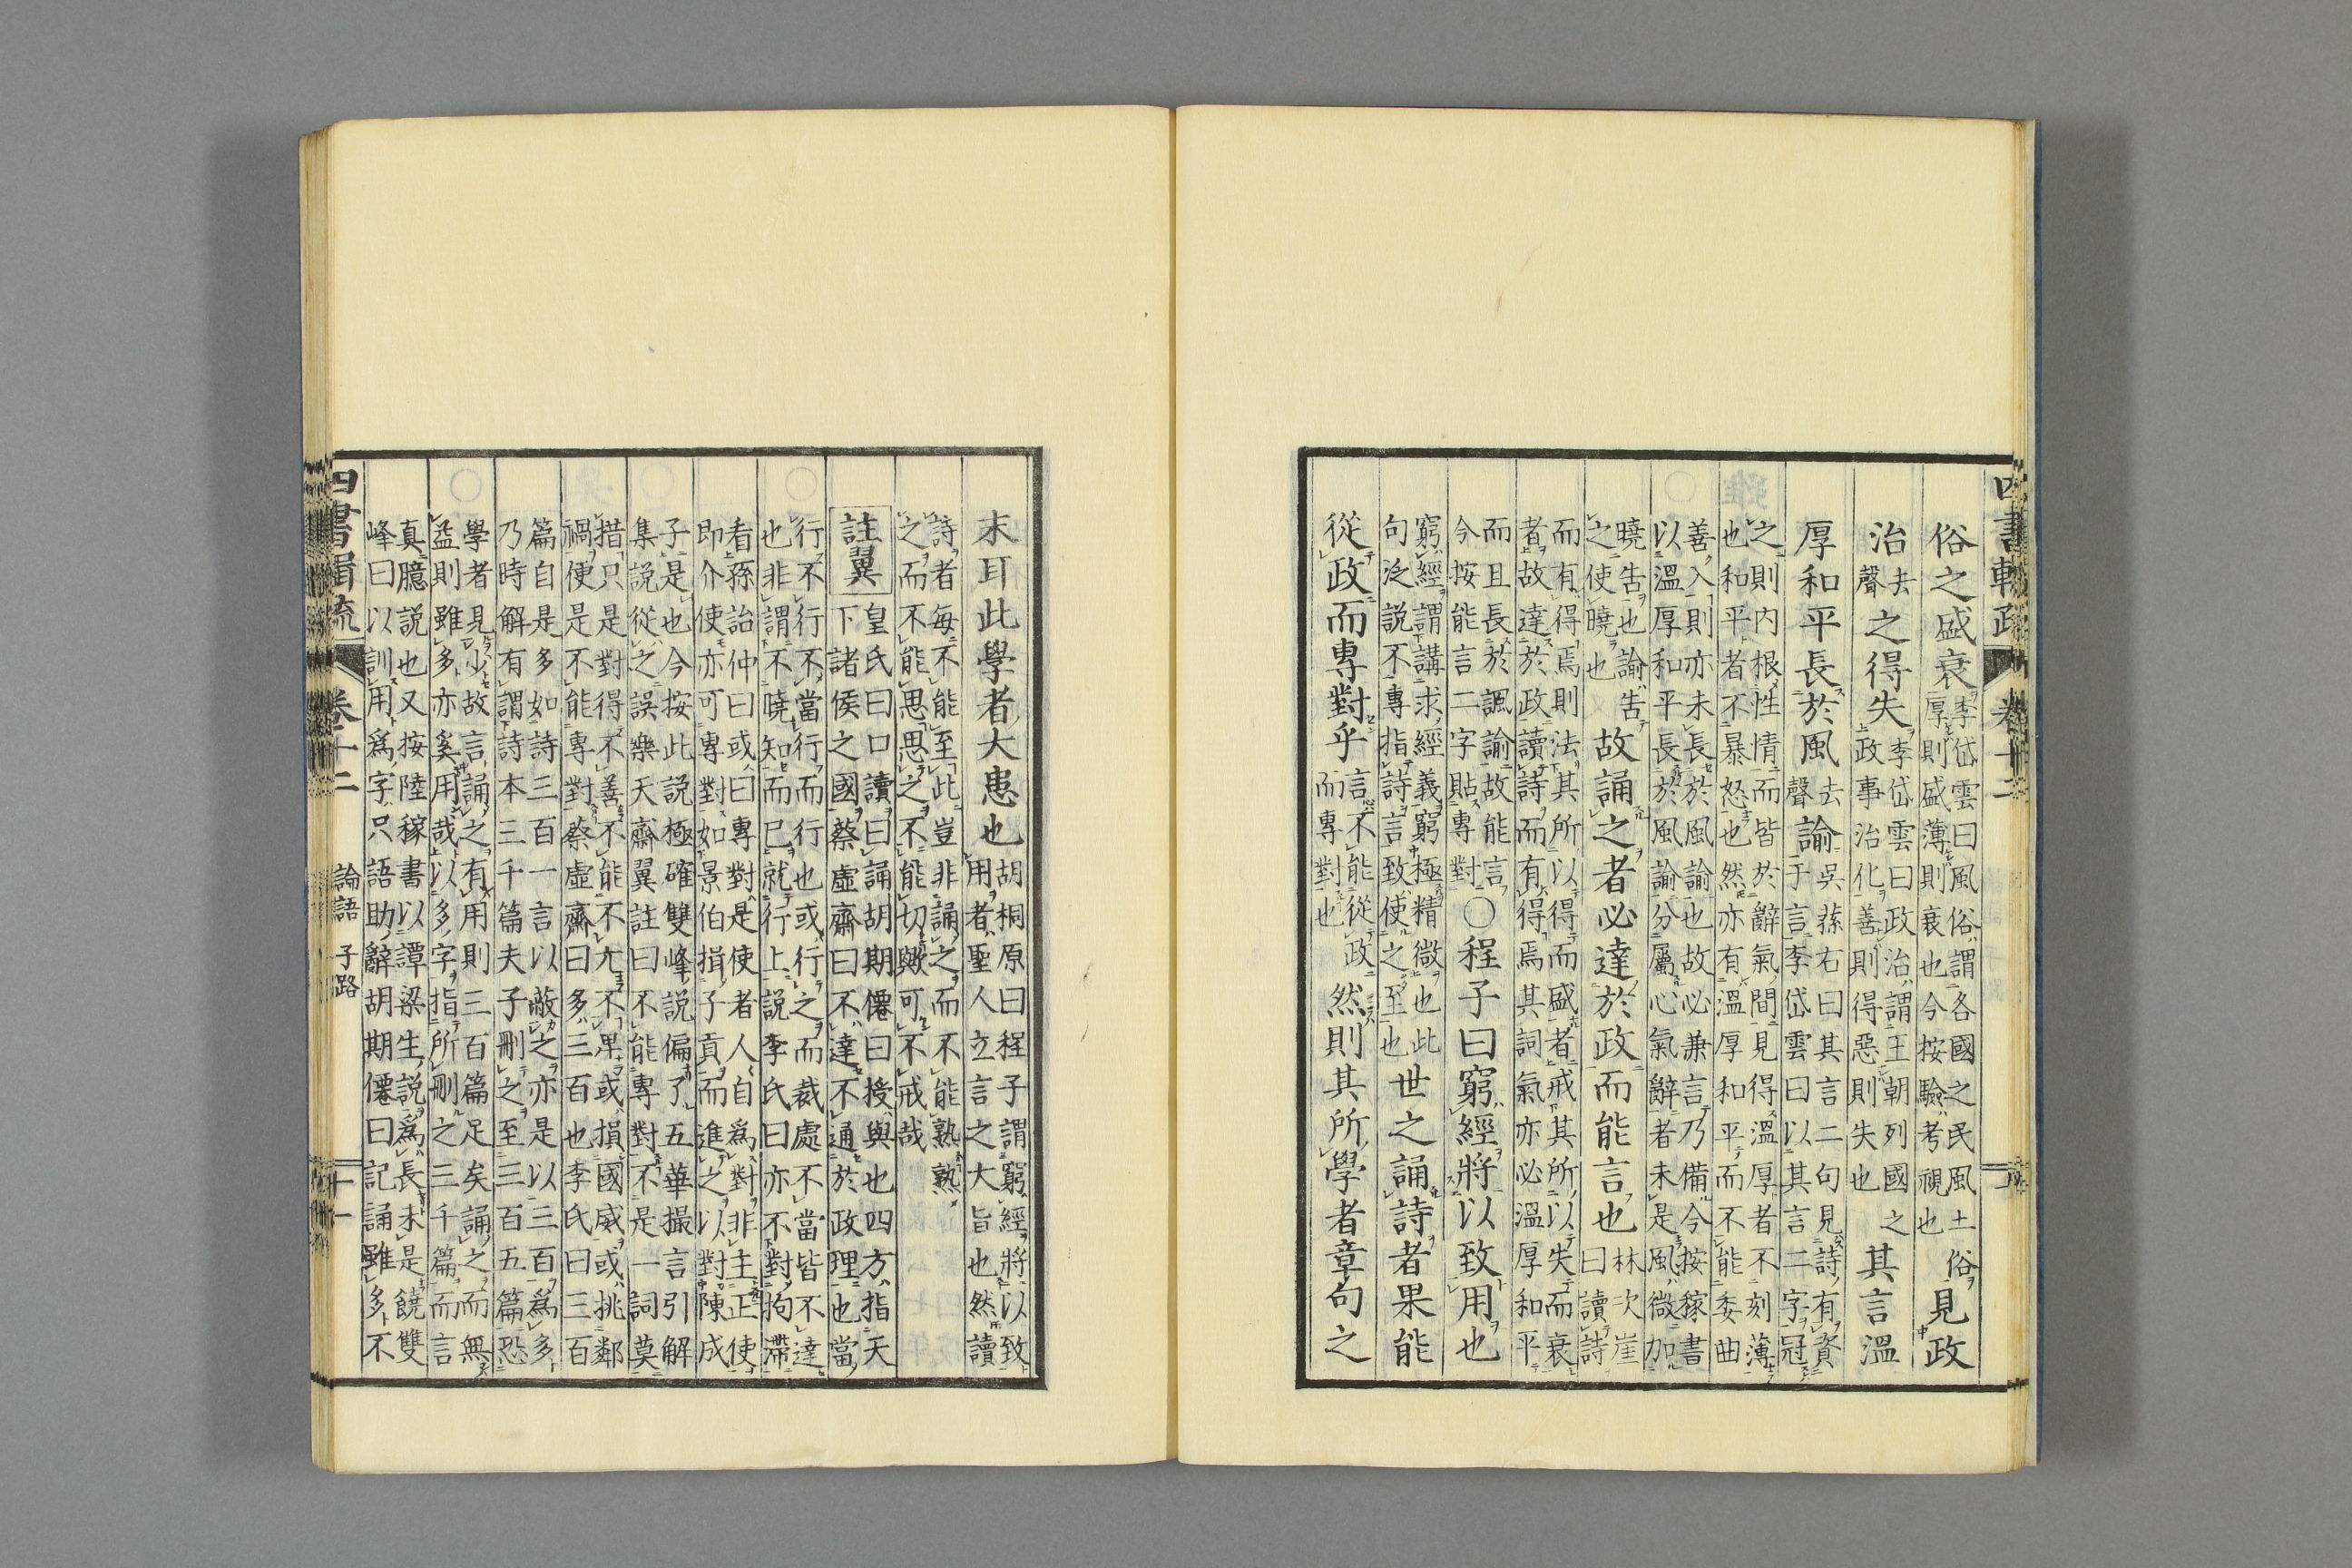 四書輯疏 卷十二
俗之盛衰
李岱雲曰風俗謂各國之民風土俗
厚則盛薄則衰也今按驗考視也
見政
治
去
聲
之得失
李岱雲曰政治謂王朝列國之
政事治化善則得惡則失也
其言溫
厚和平長於風
去
聲
諭
吳蓀右曰其言二句見詩有資
于言李岱雲曰以其言二字冠
之則内根性情而皆於辭氣間見得溫厚者不刻薄
也和平者不暴怒也然亦有溫厚和平而不能委曲
善入則亦未長於風諭也故必兼言乃備今按稼書
以溫厚和平長於風諭分屬心氣辭者未是風微加
曉告也諭告
之使曉也
故誦之者必達於政而能言也
林次崖
曰讀詩
而有得焉則法其所以得而盛者戒其所以失而衰
者故達於政讀詩而有得焉其詞氣亦必溫厚和平
而且長於諷諭故能言
今按能言二字貼專對
○程子曰窮經將以致用也
窮經謂講求經義窮極精微也此
句泛説不專指詩言致使之至也
世之誦詩者果能
從政而專對乎
言不能從政
而專對也
然則其所學者章句之
末耳此學者大患也
胡桐原曰程子謂窮經將以致
用者聖人立言之大旨也然讀
詩者每不能至此豈非誦之而不能熟熟
之而不能思思之不能切歟可不戒哉
註翼
皇氏曰口讀曰誦胡期僊曰授與也四方指天
下諸侯之國蔡虛齋曰不達不通於政理也當
行不行不當行而行也或行之而裁處不當皆不達
也非謂不曉知而已就行上説李氏曰亦不對拘滯
看孫詒仲曰或曰專對是使者人自為對非主正使
即介使亦可專對如景伯揖子貢而進之以對陳成
子是也今按此説極確雙峰説偏了五華撮言引解
集説從之誤樂天齋翼註曰不能專對不是一詞莫
措只是對得不善不能不亢不卑或損國威或挑鄰
禍便是不能專對蔡虛齋曰多三百也李氏曰三百
篇自是多如詩三百一言以蔽之亦是以三百為多
乃時解有謂詩本三千篇夫子刪之至三百五篇恐
學者見少故言誦之有用則三百篇足矣誦之而無
益則雖多亦奚用哉以多字指所刪之三千篇而言
真臆説也又按陸稼書以譚梁生説為長未是饒雙
峰曰以訓用為字只語助辭胡期僊曰記誦雖多不
四書輯疏 卷十二 論語 子路 十一